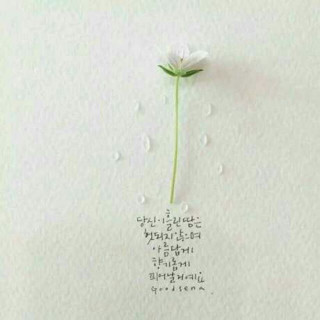 당신이 흘린 땀은
헛되지 않으며
아름답게
향기롭게
피어날 거예요